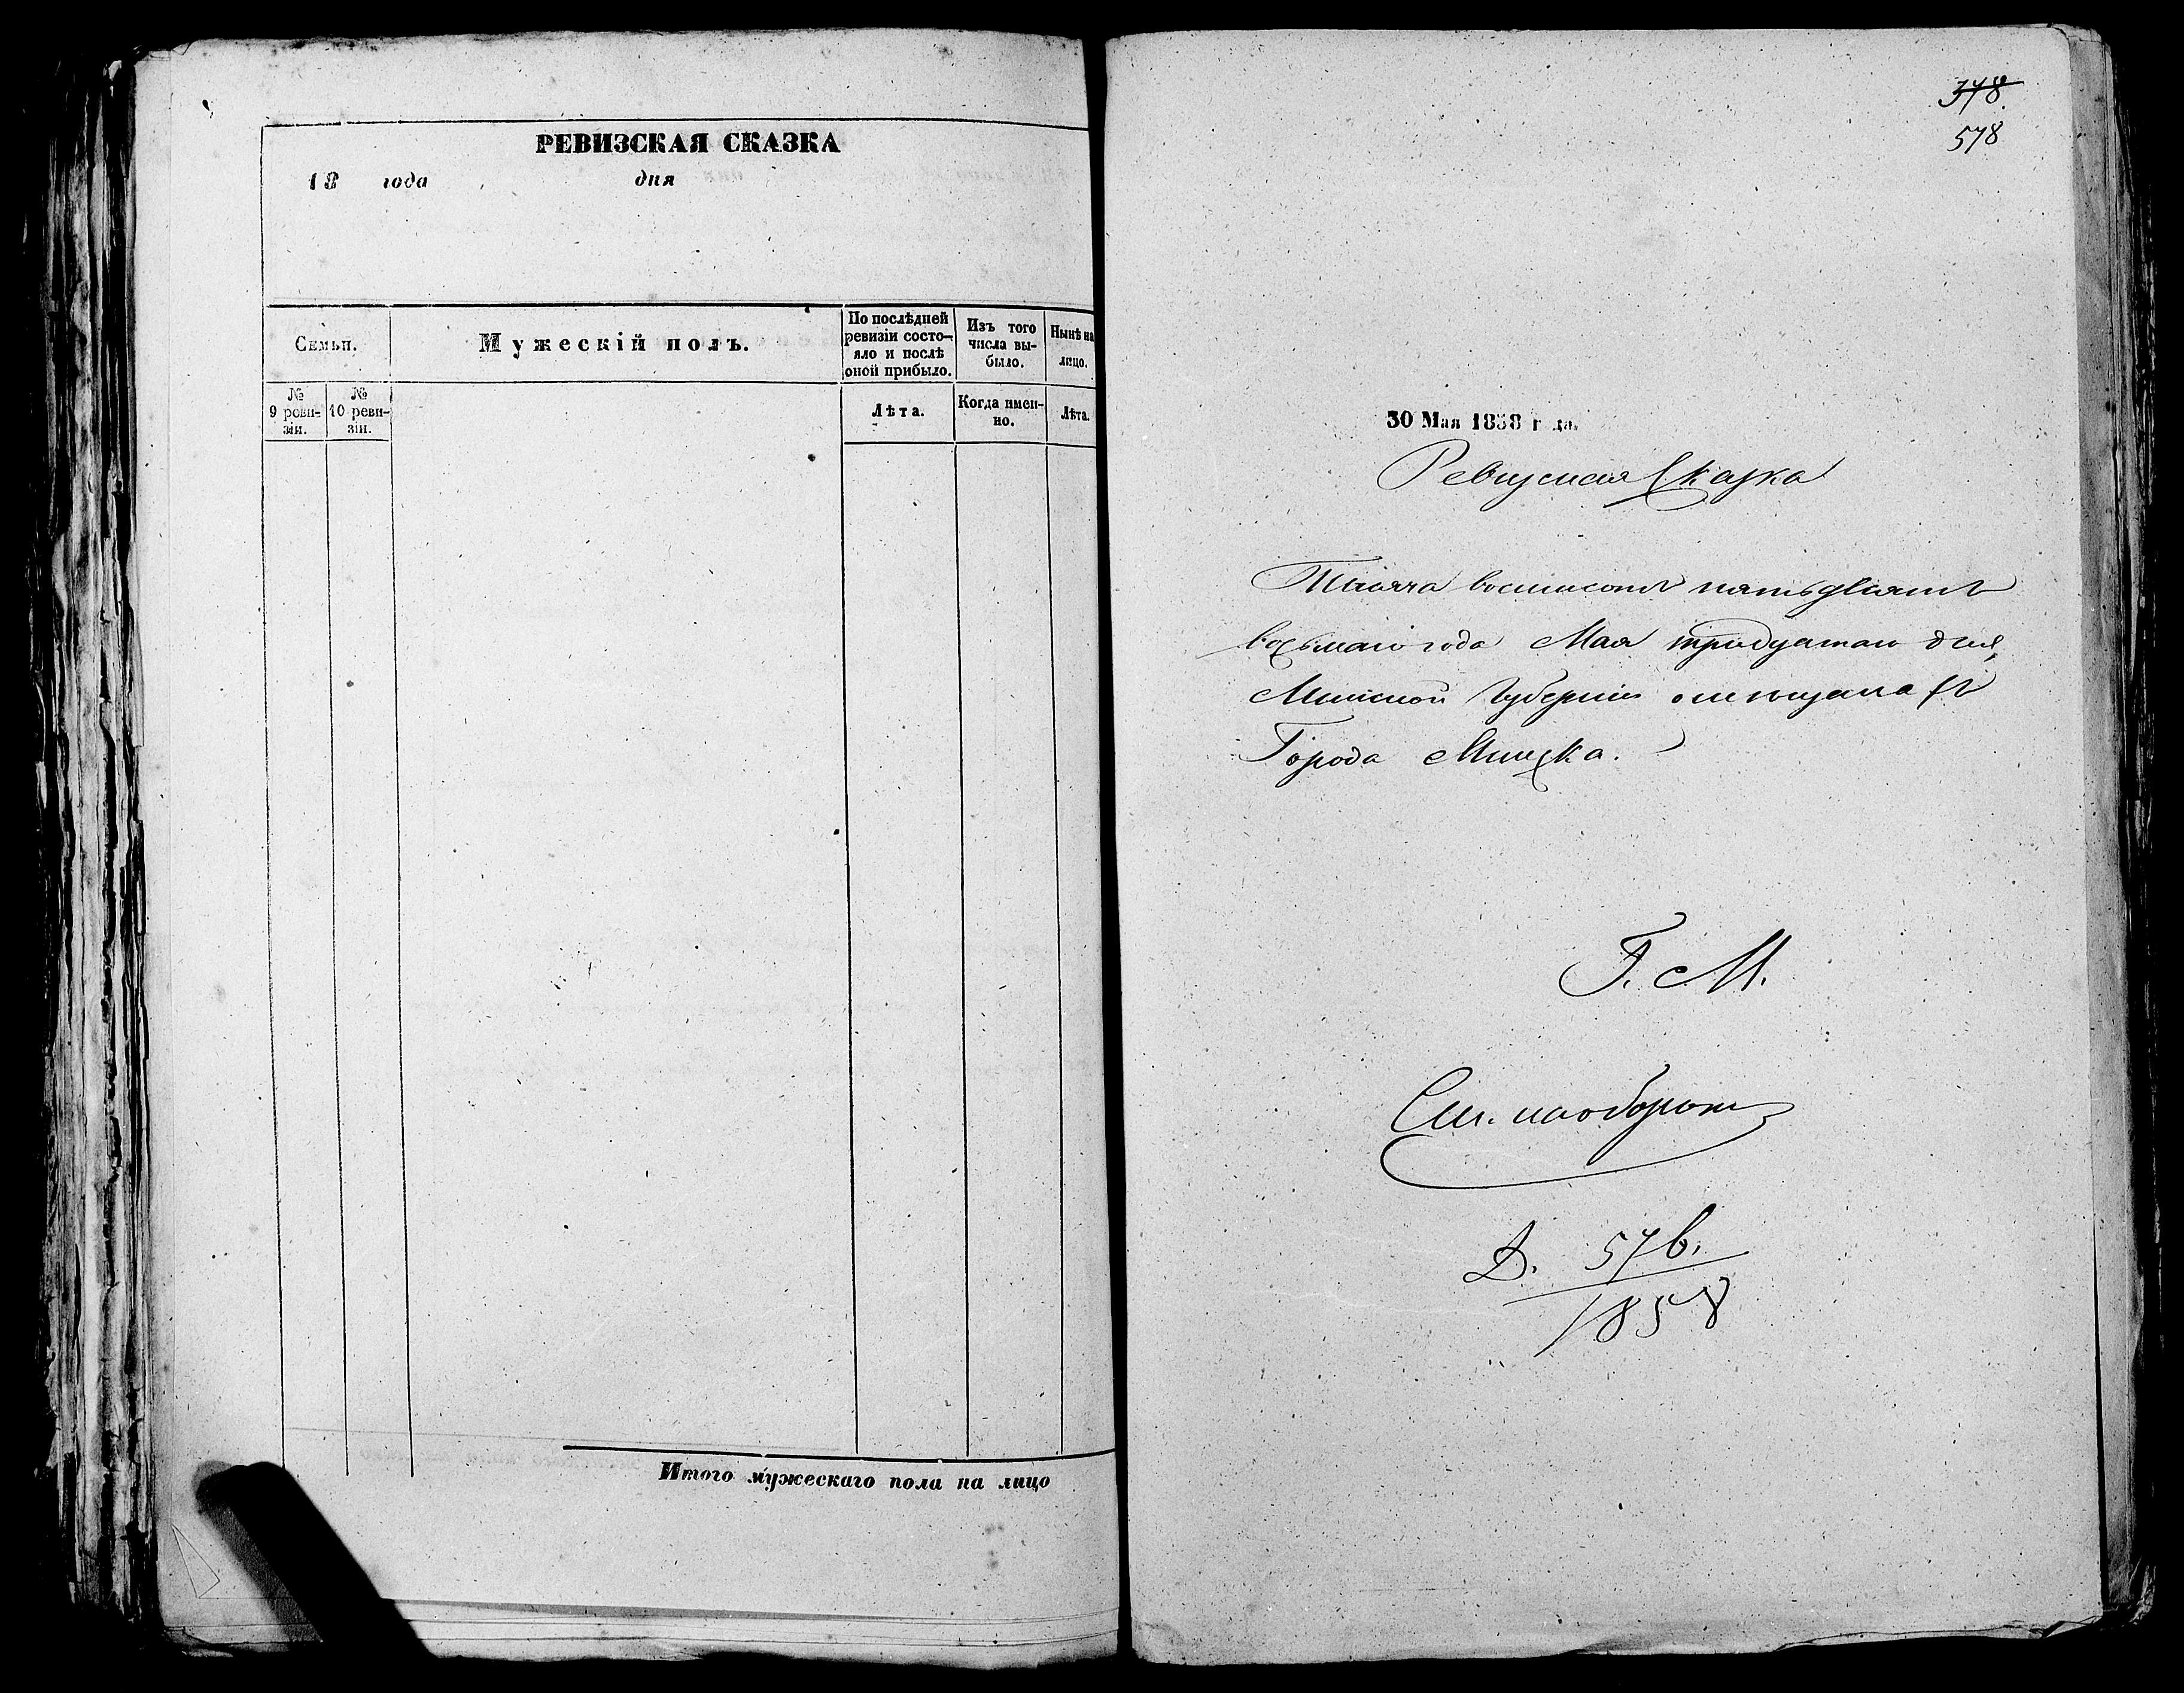 РЕВИЗСКАЯ СКАЗКА
18 года дня
Семьи.
Мужескій полъ.
По послѣдней ревизіи состо-
яло и послѣ оной прибыло.
Изъ того числа вы-
было.
Нынѣ на лицо.
№ 9 реви-
зіи.
№ 10 реви-
зіи.
Лѣта.
Когда имен-
но.
Лѣта.
Итого мужескаго пола на лицо
378.
578
30 Мая 1858 г да.
Ревизская Сказка
Тысяча восемьсотъ пятьдесятъ
восьмаго года Мая тридцатаго дня,
Минской Губерніи о мѣщанахъ
Города Минска.
Г. М.
См. на оборотѣ
Д. 576.
1858